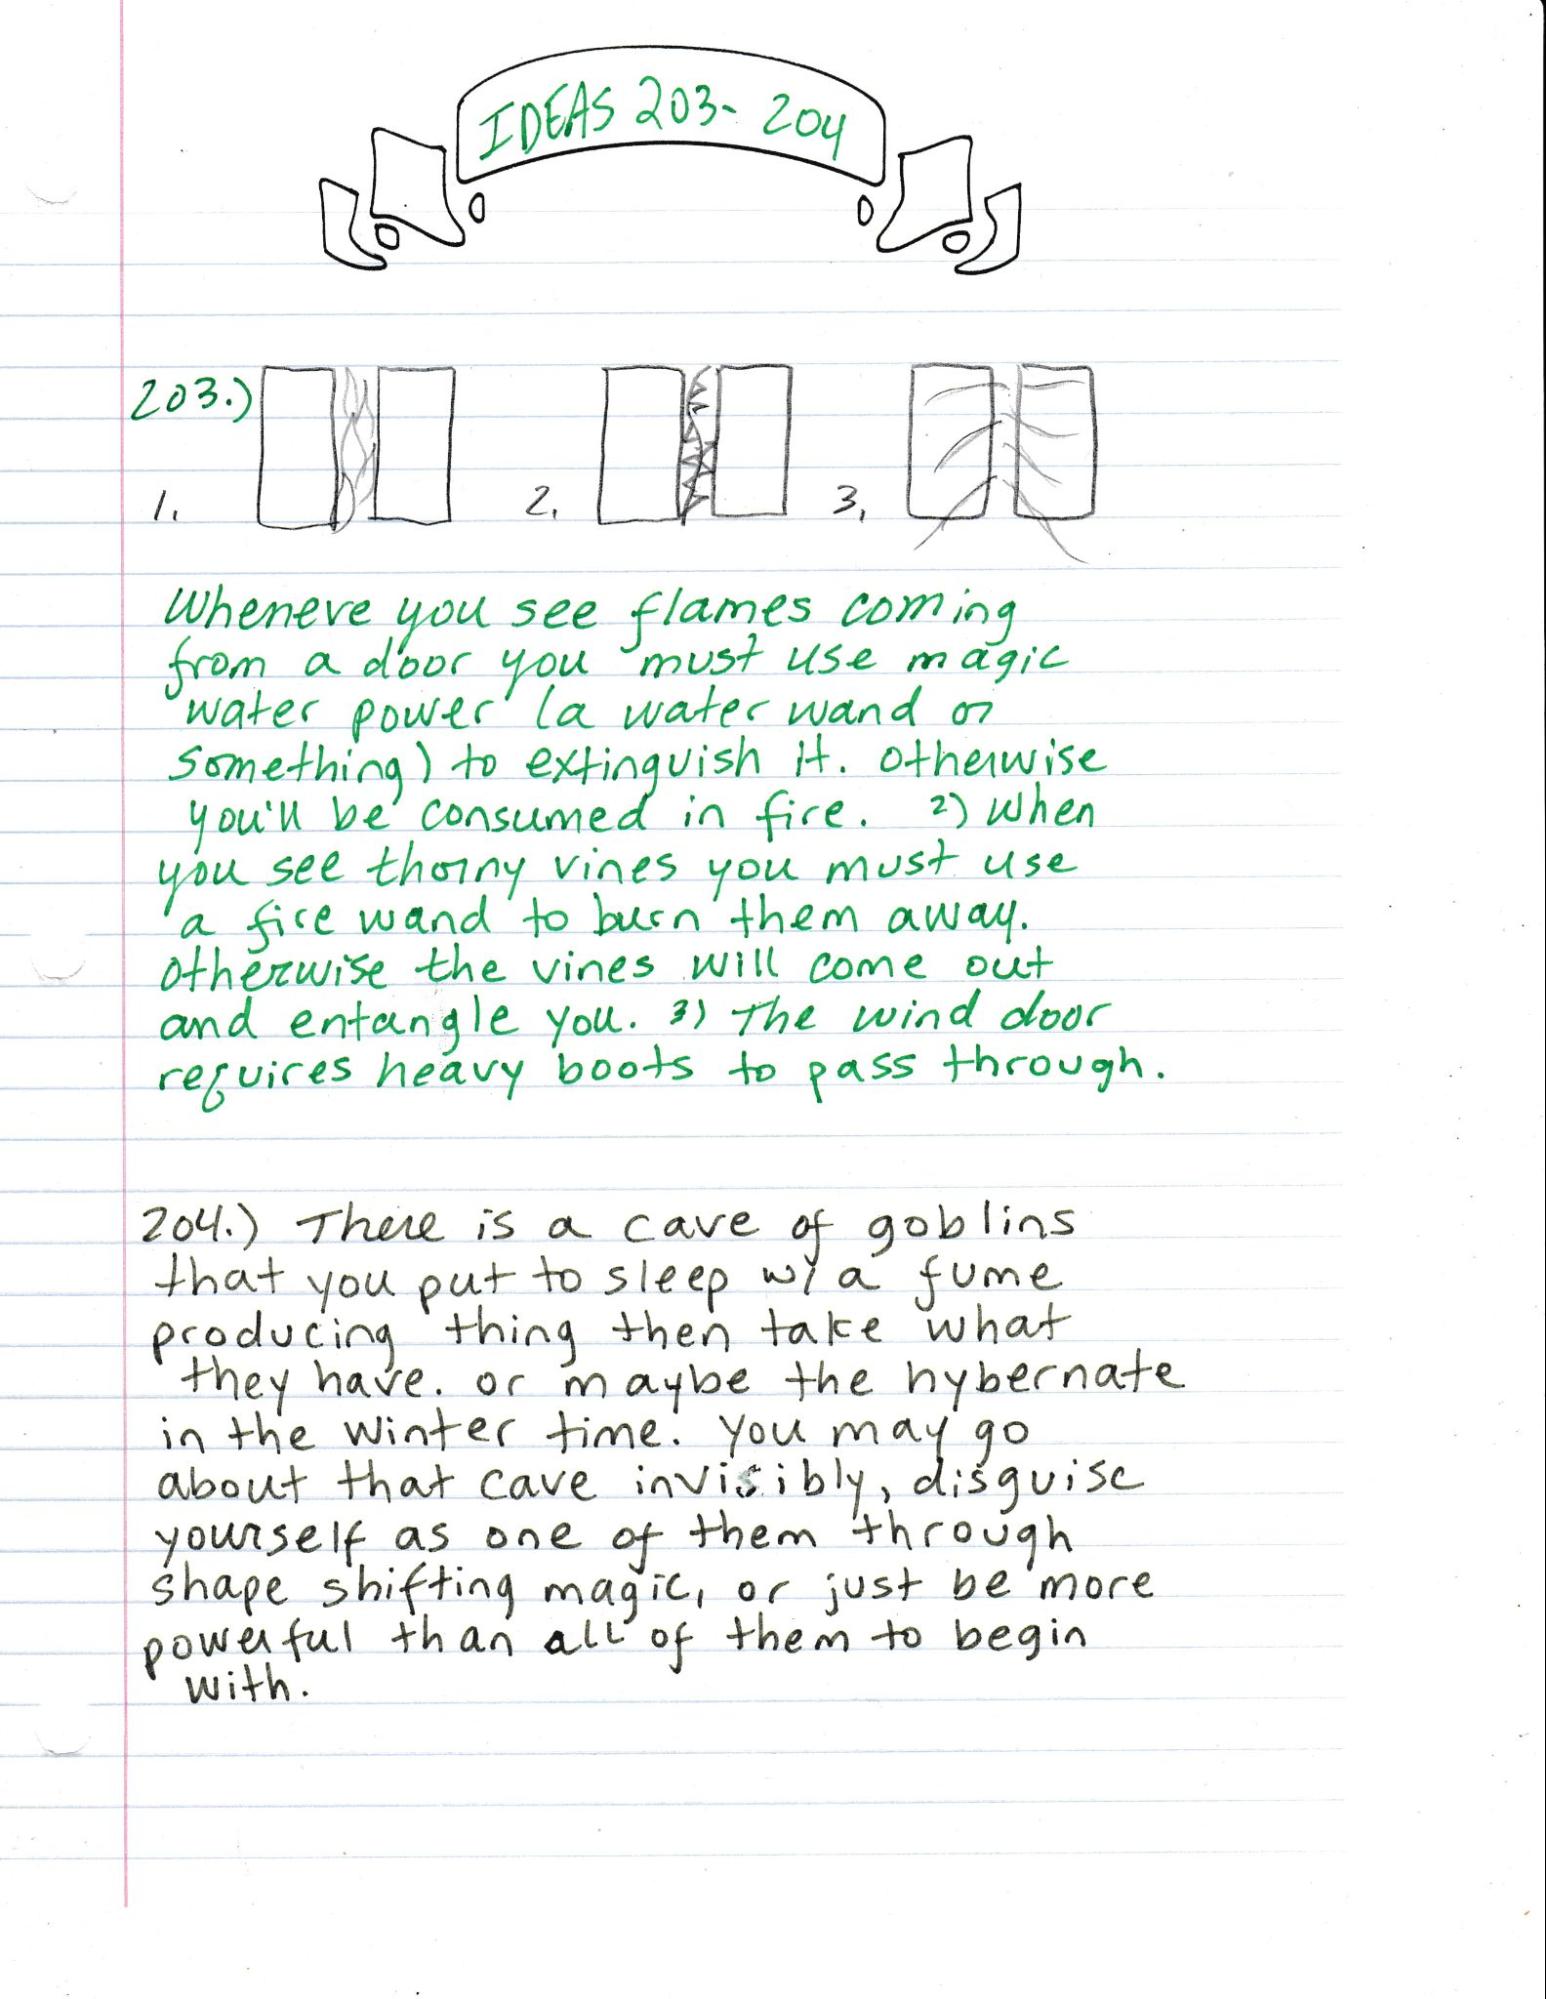 IDEAS 203- 204
203.)
1. 2. 3.
Wheneve you see flames coming
from a door you must use magic
water power (a water wand or
something) to extinguish it. otherwise
you'll be consumed in fire. 2) When
you see thorny vines you must use
a fire wand to burn them away.
otherwise the vines will come out
and entangle you. 3) The wind door
requires heavy boots to pass through.
204.) There is a cave of goblins
that you put to sleep w/ a fume
producing thing then take what
they have. or maybe the hybernate
in the winter time. You may go
about that cave invisibly, disguise
yourself as one of them through
shape shifting magic, or just be more
powerful than all of them to begin
with.